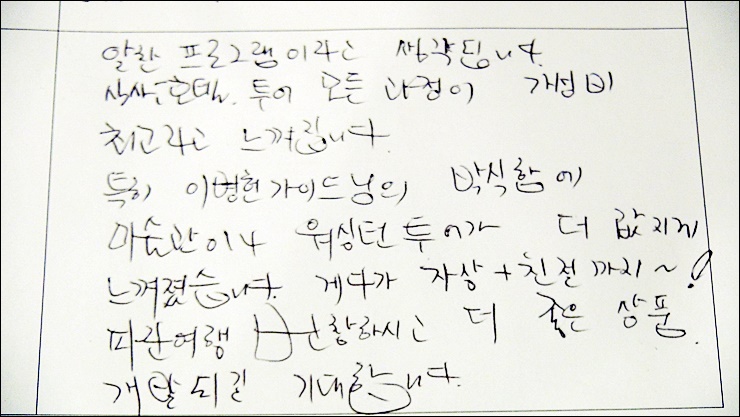 알찬 프로그램이라고 생각됩니다.
식사, 호텔, 투어 모든 과정이
최고라고 느껴집니다.
특히 이병헌가이드님의 박식함에
워싱턴투어가 더 값지게
느껴졌습니다. 게다가 자상+친절까지~!
파란여행 번창하시고 더 좋은 상품
개발되길 기대합니다.